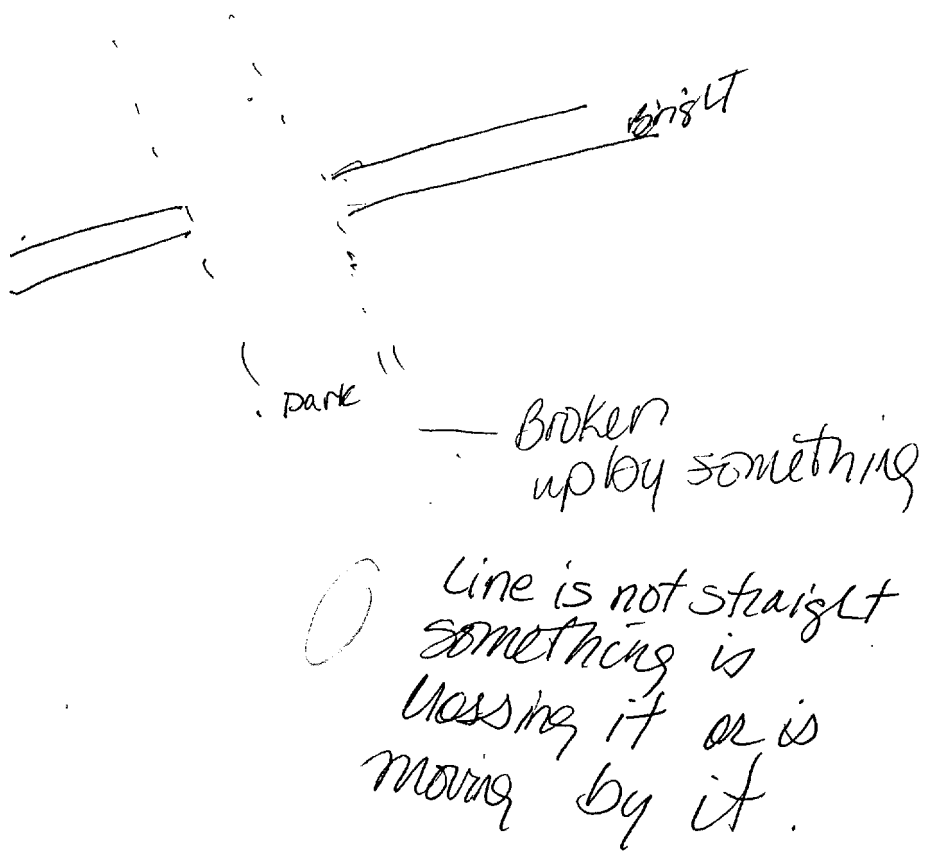 Bright
Dark
— Broken
up by something
Line is not straight
something is
crossing it or is
moving by it.